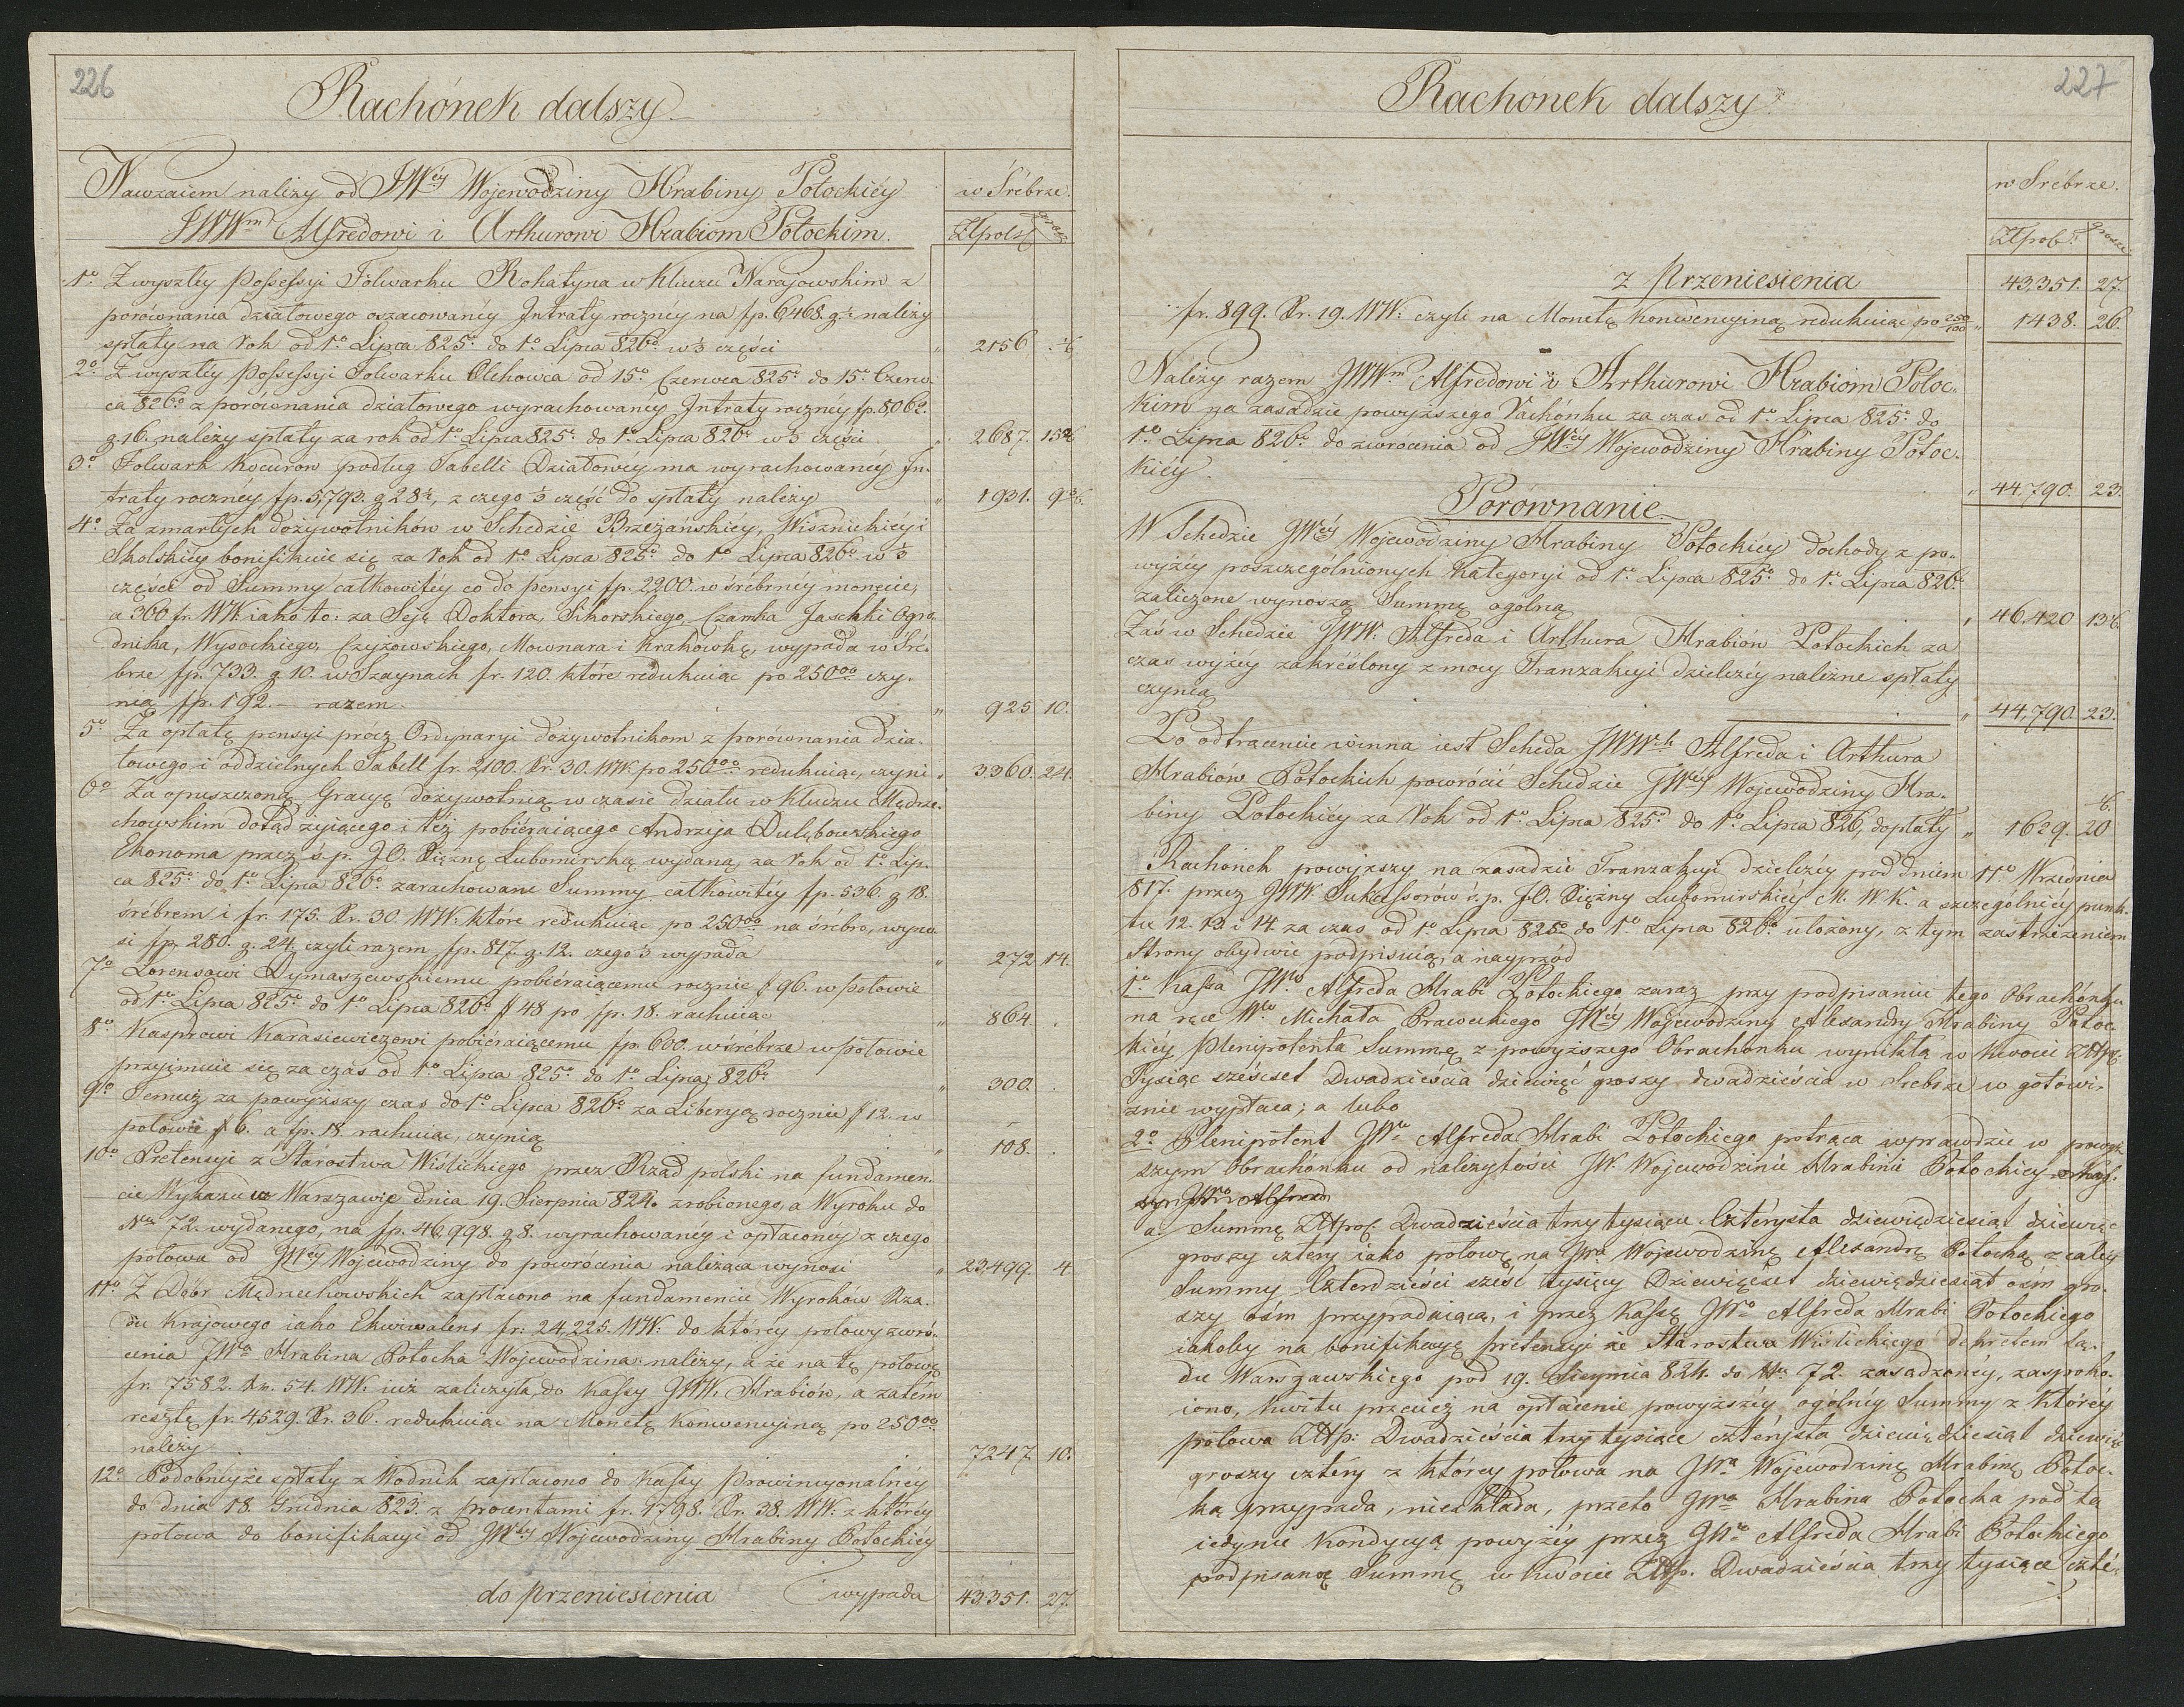 226
Rachónek dalszy.
Nawzaiem należy od JWéy Wojewodziny Hrabiny Potockiéy
w Srébrze.
JWWm Alfredowi i Arthurowi Hrabiom Potockim.
Złpols. grosz.
1o Z wyszłey Possessyi Folwarku Rohatyna w Kluczu Narajowskim z
porównania działowego oszacowanéy Intraty rocznéy na fp. 6,468. g należy
spłaty na rok od 1o Lipca 825o do 1o Lipca 826o w ⅓ części " 2156
2o Z wyszłey Possessyi Folwarku Olchowca od 15o Czerwca 825o do 15o Czerw-
ca 826o z porównania działowego wyrachowanéy Intraty rocznéy fp. 8062.
g. 16. należy spłaty za rok od 1o Lipca 825o do 1o Lipca 826o w ⅓ części " 2687.
3o Folwark Kocurow podług Tabelli Działowéy ma wyrachowanéy In-
traty rocznéy fp. 5,793. g 28, z czego ⅓ część do spłaty należy " 1931.
4o Za zmarłych dożywotników w Schedzie Brzeżańskiéy, Wisznickiéy i
Skolskiéy bonifikuie się za rok od 1o Lipca 825o do 1o Lipca 826o w ⅓
części od Summy całkowitéy co do pensyi fp. 2200. w śrébrnéy monecie,
a 300 fr. WW. iako to: za Seję Doktora, Sikorskiego, Czarnka Jaschki Ogro-
dnika, Wysockiego, Czyżowskiego, Mownara i Krakówkę, wypada w Śré-
brze fp. 733. g 10. w Szaynach fr. 120. które redukuiąc po 250 czy-
nią fp. 192. — razem " 925 10.
5o Za opłatę pensyi prócz Ordynaryi dożywotnikom z porównania dzia-
łowego i oddzielnych Tabell fr. 2,100. Xr. 30. WW. po 250 redukuiąc, czyni " 3360. 24.
6o Za opuszczoną Gracyę dożywotnią w czasie działu w Kluczu Mędrze-
chowskim dotąd żyiącego i też pobiéraiącego Andrzeja Dulębowskiego
Ekonoma przez ś. p. JO. Xiężnę Lubomirską wydaną, za rok od 1o Lip-
ca 825o do 1o Lipca 826o zarachowane Summy całkowitéy fp. 536. g 18.
śrébrem i fr. 175. Xr. 30. WW. które redukuiąc po 250 na śrébro, wyno-
si fp. 280. g. 24, czyli razem fp. 817. g. 12. czego ⅓ wypada " 272 14.
7o Lorensowi Dymaszewskiemu pobiéraiącemu rocznie # 96. w połowie
od 1o Lipca 825o do 1o Lipca 826o # 48 po fp. 18. rachuiąc " 864. .
8o Kasprowi Karasiewiczowi pobiéraiącemu fp. 600. w śrébrze w połowie
przyjmuie się za czas od 1o Lipca 825o do 1o Lipca 826o " 300. .
9o Temuż za powyższy czas do 1o Lipca 826o za Liberyą rocznie # 12. w
połowie # 6. a fp. 18. rachuiąc, czynią " 108. .
10o Pretensyi z Starostwa Wiślickiego przez Rząd polski na fundamen-
cie Wykazu w Warszawie dnia 19. Sierpnia 824. zrobionego, a Wyroku do
Nra 72. wydanego, na fp. 46,998. g 8. wyrachowanéy i opłaconéy z czego
połowa od JWéy Wojewodziny do powrócenia należąca wynosi " 23,499. 4.
11o Z Dóbr Mędrzechowskich zapłacono na fundamencie Wyroków Rzą-
du Krajowego iako Ekwiwalens fr: 24,225. WW: do któréy połowy zwró-
cenia JWa Hrabina Potocka Wojewodzina należy, a że na tę połowę
fr. 7582. Xr. 54. WW. iuż zaliczyła do Kassy JWW. Hrabiów, a zatem
resztę fr. 4,529. Xr. 36. redukuiąc na Monetę Konwencyiną po 250
należy 7247 10.
12o Podobnéyże spłaty z Wodnik zapłacono do Kassy Prowincyonalnéy
do dnia 18. Grudnia 823. z procentami fr. 1798. Xr. 38. WW: z któréy
połowa do bonifikacyi od JWéy Wojewodziny Hrabiny Potockiéy
do przeniesienia wypada 43,351. 27.
227
Rachónek dalszy.
w Srébrze.
Złpols. grosze.
z Przeniesienia 43,351. 27.
fr. 899. Xr. 19. WW. czyli na Monetę Konwencyiną redukuiąc po 250/100 " 1438. 26.
Należy razem JWWm Alfredowi i Arthurowi Hrabiom Potoc-
kim na zasadzie powyższego rachónku za czas od 1o Lipca 825o do
1o Lipca 826o do zwrocenia od JWéy Wojewodziny Hrabiny Potoc-
kiéy. " 44,790. 23.
Porównanie.
W Schedzie JWéy Wojewodziny Hrabiny Potockiéy dochody z po-
wyżéy poszczególnionych Kategoryi od 1o Lipca 825o do 1o Lipca 826o
zaliczone wynoszą Summę ogólną " 46,420
Zaś w Schedzie JWW. Alfreda i Arthura Hrabiów Potockich za
czas wyżéy zakréślony z mocy Tranzakcyi dzielczéy należne spłaty
czynią " 44,790. 23.
Po odtrącenie winna iest Scheda JWWch Alfreda i Arthura
Hrabiów Potockich powrócić Schedzie JWéy Wojewodziny Hra-
biny Potockiéy za rok od 1o Lipca 825o do 1o Lipca 826, dopłaty " 1629. 20
Rachónek powyższy na zasadzie Tranzakcyi dzielczéy pod dniem 11o Września
817. przez JWW. Sukcessorów ś. p. JO. Xiężny Lubomirskiéy M. W. K. a szczególniéy punk-
tu 12. 13. i 14. za czas od 1o Lipca 825o do 1o Lipca 826o ułożony, z tym zastrzeżeniem
Strony obydwie podpisuią, a nayprzód
1o Kassa JWo Alfreda Hrabi Potockiego zaraz przy podpisaniu tego Obrachónku
na ręce Wo Michała Praweckiego JWéy Wojewodziny Alexandry Hrabiny Potoc-
kiéy Plenipotenta Summę z powyższego Obrachónku wynikłą w kwocie Złp.
Tysiąc sześćset Dwadzieścia dziewięć groszy dwadzieścia w Srebrze w gotowi-
znie wypłaca; a lubo
2o Plenipotent JWo Alfreda Hrabi Potockiego potrąca wprawdzie w powyż-
szym Obrachónku od należytości JW. Wojewodzinie Hrabinie Potockiey
a. Summę Złpol. Dwadzieścia trzy tysiące Cztérysta dziewiędziesiąt dziewięć
groszy cztery iako połowę na JWa Wojewodzinę Alexandrę Potocką z całéy
Summy Czterdzieści sześć tysięcy Dziewięćset dziewiędziesiąt ośm gro-
szy ośm przypadaiącą, i przez Kassę JWo Alfreda Hrabi Potockiego
iakoby na bonifikacyę pretensyi ze Starostwa Wiślickiego dekretem Są-
du Warszawskiego pod 19. Sierpnia 824. do Nr. 72. zasądzonéy, zaspoko-
iono, kwitu przecież na opłacenie powyższéy ogólnéy Summy z któréy
połowa Złp: Dwadzieścia trzy tysiące cztérysta dziewiędziesiąt dziewięć
groszy cztéry z któréy połowa na JWa Wojewodzinę Hrabinę Potoc-
ką przypada, nieskłada, przeto JWa Hrabina Potocka pod tą
iedynie Kondycyą powyżéy przez JWo Alfreda Hrabi Potockiego
podpisaną Summę w kwocie Złp. Dwadzieścia trzy tysiące czté-